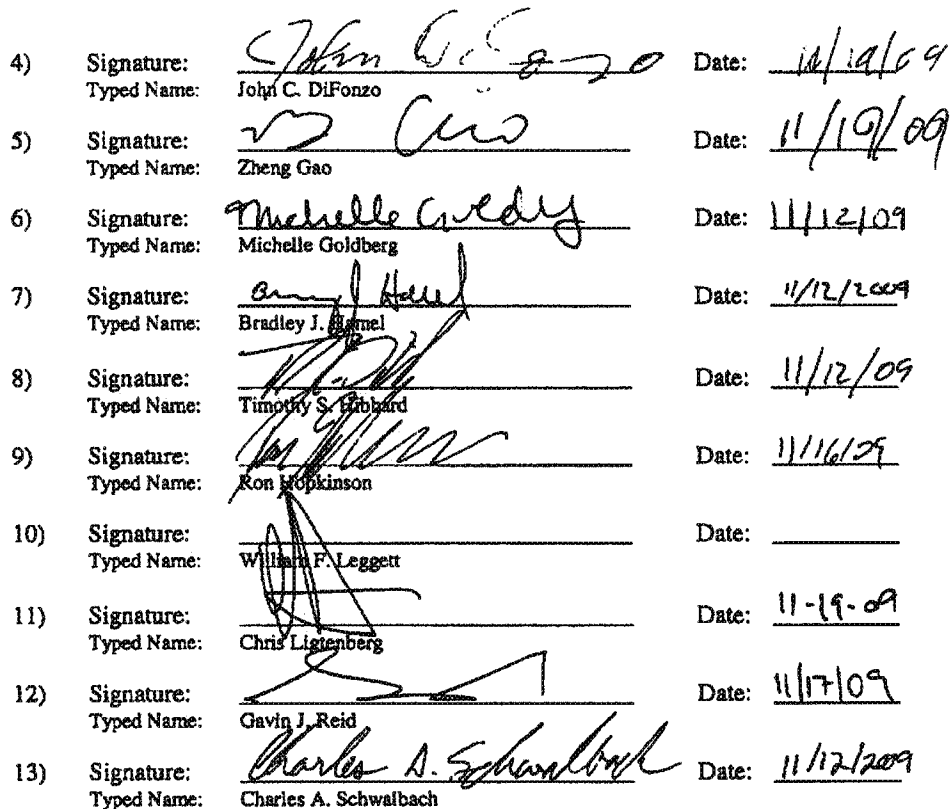 4) Signature: John C. DiFonzo Date: 11/19/09
Typed Name: John C. DiFonzo
5) Signature: Gao Date: 11/19/09
Typed Name: Zheng Gao
6) Signature: Michelle Date: 11/12/09
Typed Name: Michelle Goldberg
7) Signature: Date: 11/12/2009
Typed Name: Bradley J. Hamel
8) Signature: Date: 11/12/09
Typed Name: Timothy S. Hibbard
9) Signature: Date: 11/16/09
Typed Name: Ron Hopkinson
10) Signature: Date:
Typed Name: William F. Leggett
11) Signature: Date: 11-19-09
Typed Name: Chris Ligtenberg
12) Signature: Date: 11/17/09
Typed Name: Gavin J. Reid
13) Signature: Charles A. Schwalbach Date: 11/12/2009
Typed Name: Charles A. Schwalbach